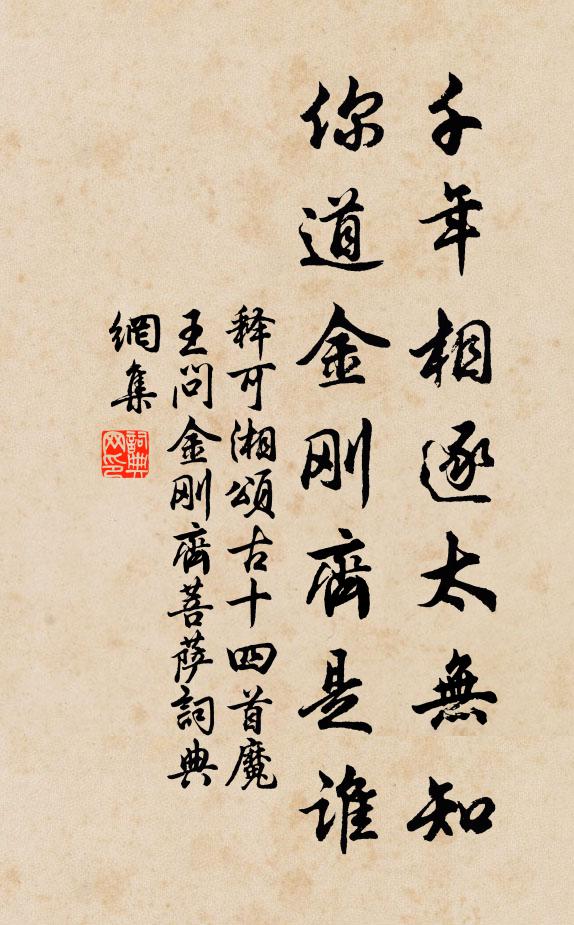 千年相逐太無知
你道金刚齊是誰
释可湘頌古十四首魔
王问金刚齊菩萨詞典
網集
詞典
网印